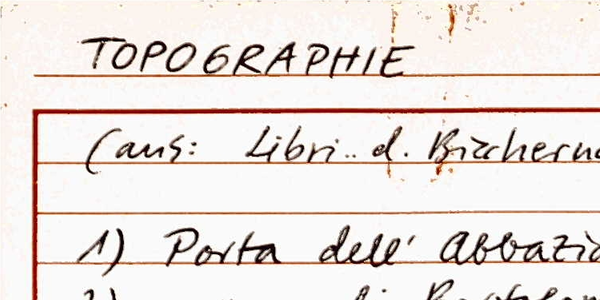 TOPOGRAPHIE
(aus: Libri.. d. Biccherna
1) Porta dell' Abbazia
2) di